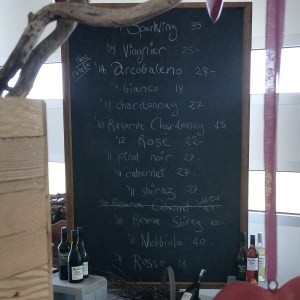 Sparkling 35-
Viognier 25-
'14 Arcobaleno 28-
'11 bianco 18
'11 chardonnay 27
'10 Reserve Chardonnay
'12 Rose 22-
'11 pinot noir 27
'11 cabernet 27
'11 shiraz 27
Reserve Cabernet
'10 Reserve Shiraz
'11 Nebbiolo 40
Rosso 18